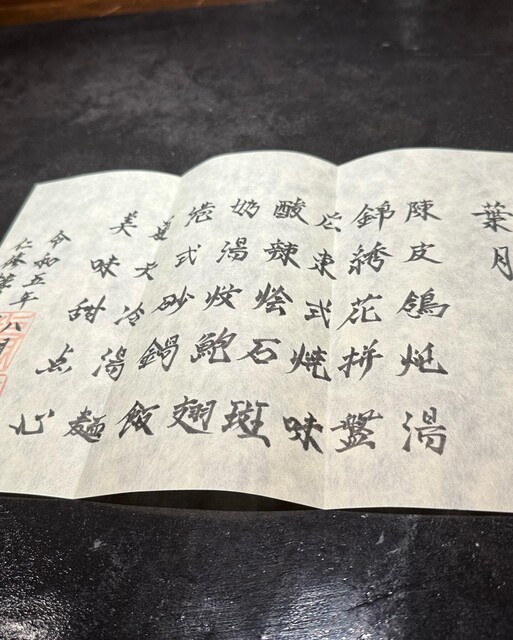 葉月
陳皮鴿炖湯
錦綉花拼盤
広東式焼味
酸辣烩石斑
奶湯炆鮑翅
港式砂鍋飯
夏天冷湯麺
美味甜点心
令和五年八月